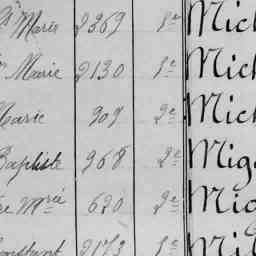 Marie 2369 1e Mich
Marie 2130 1e Mich
Marie 909 2e Mich
Baptiste 968 2e Mig
Mrie 620 2e Mi
Constant 2173 1e Mil